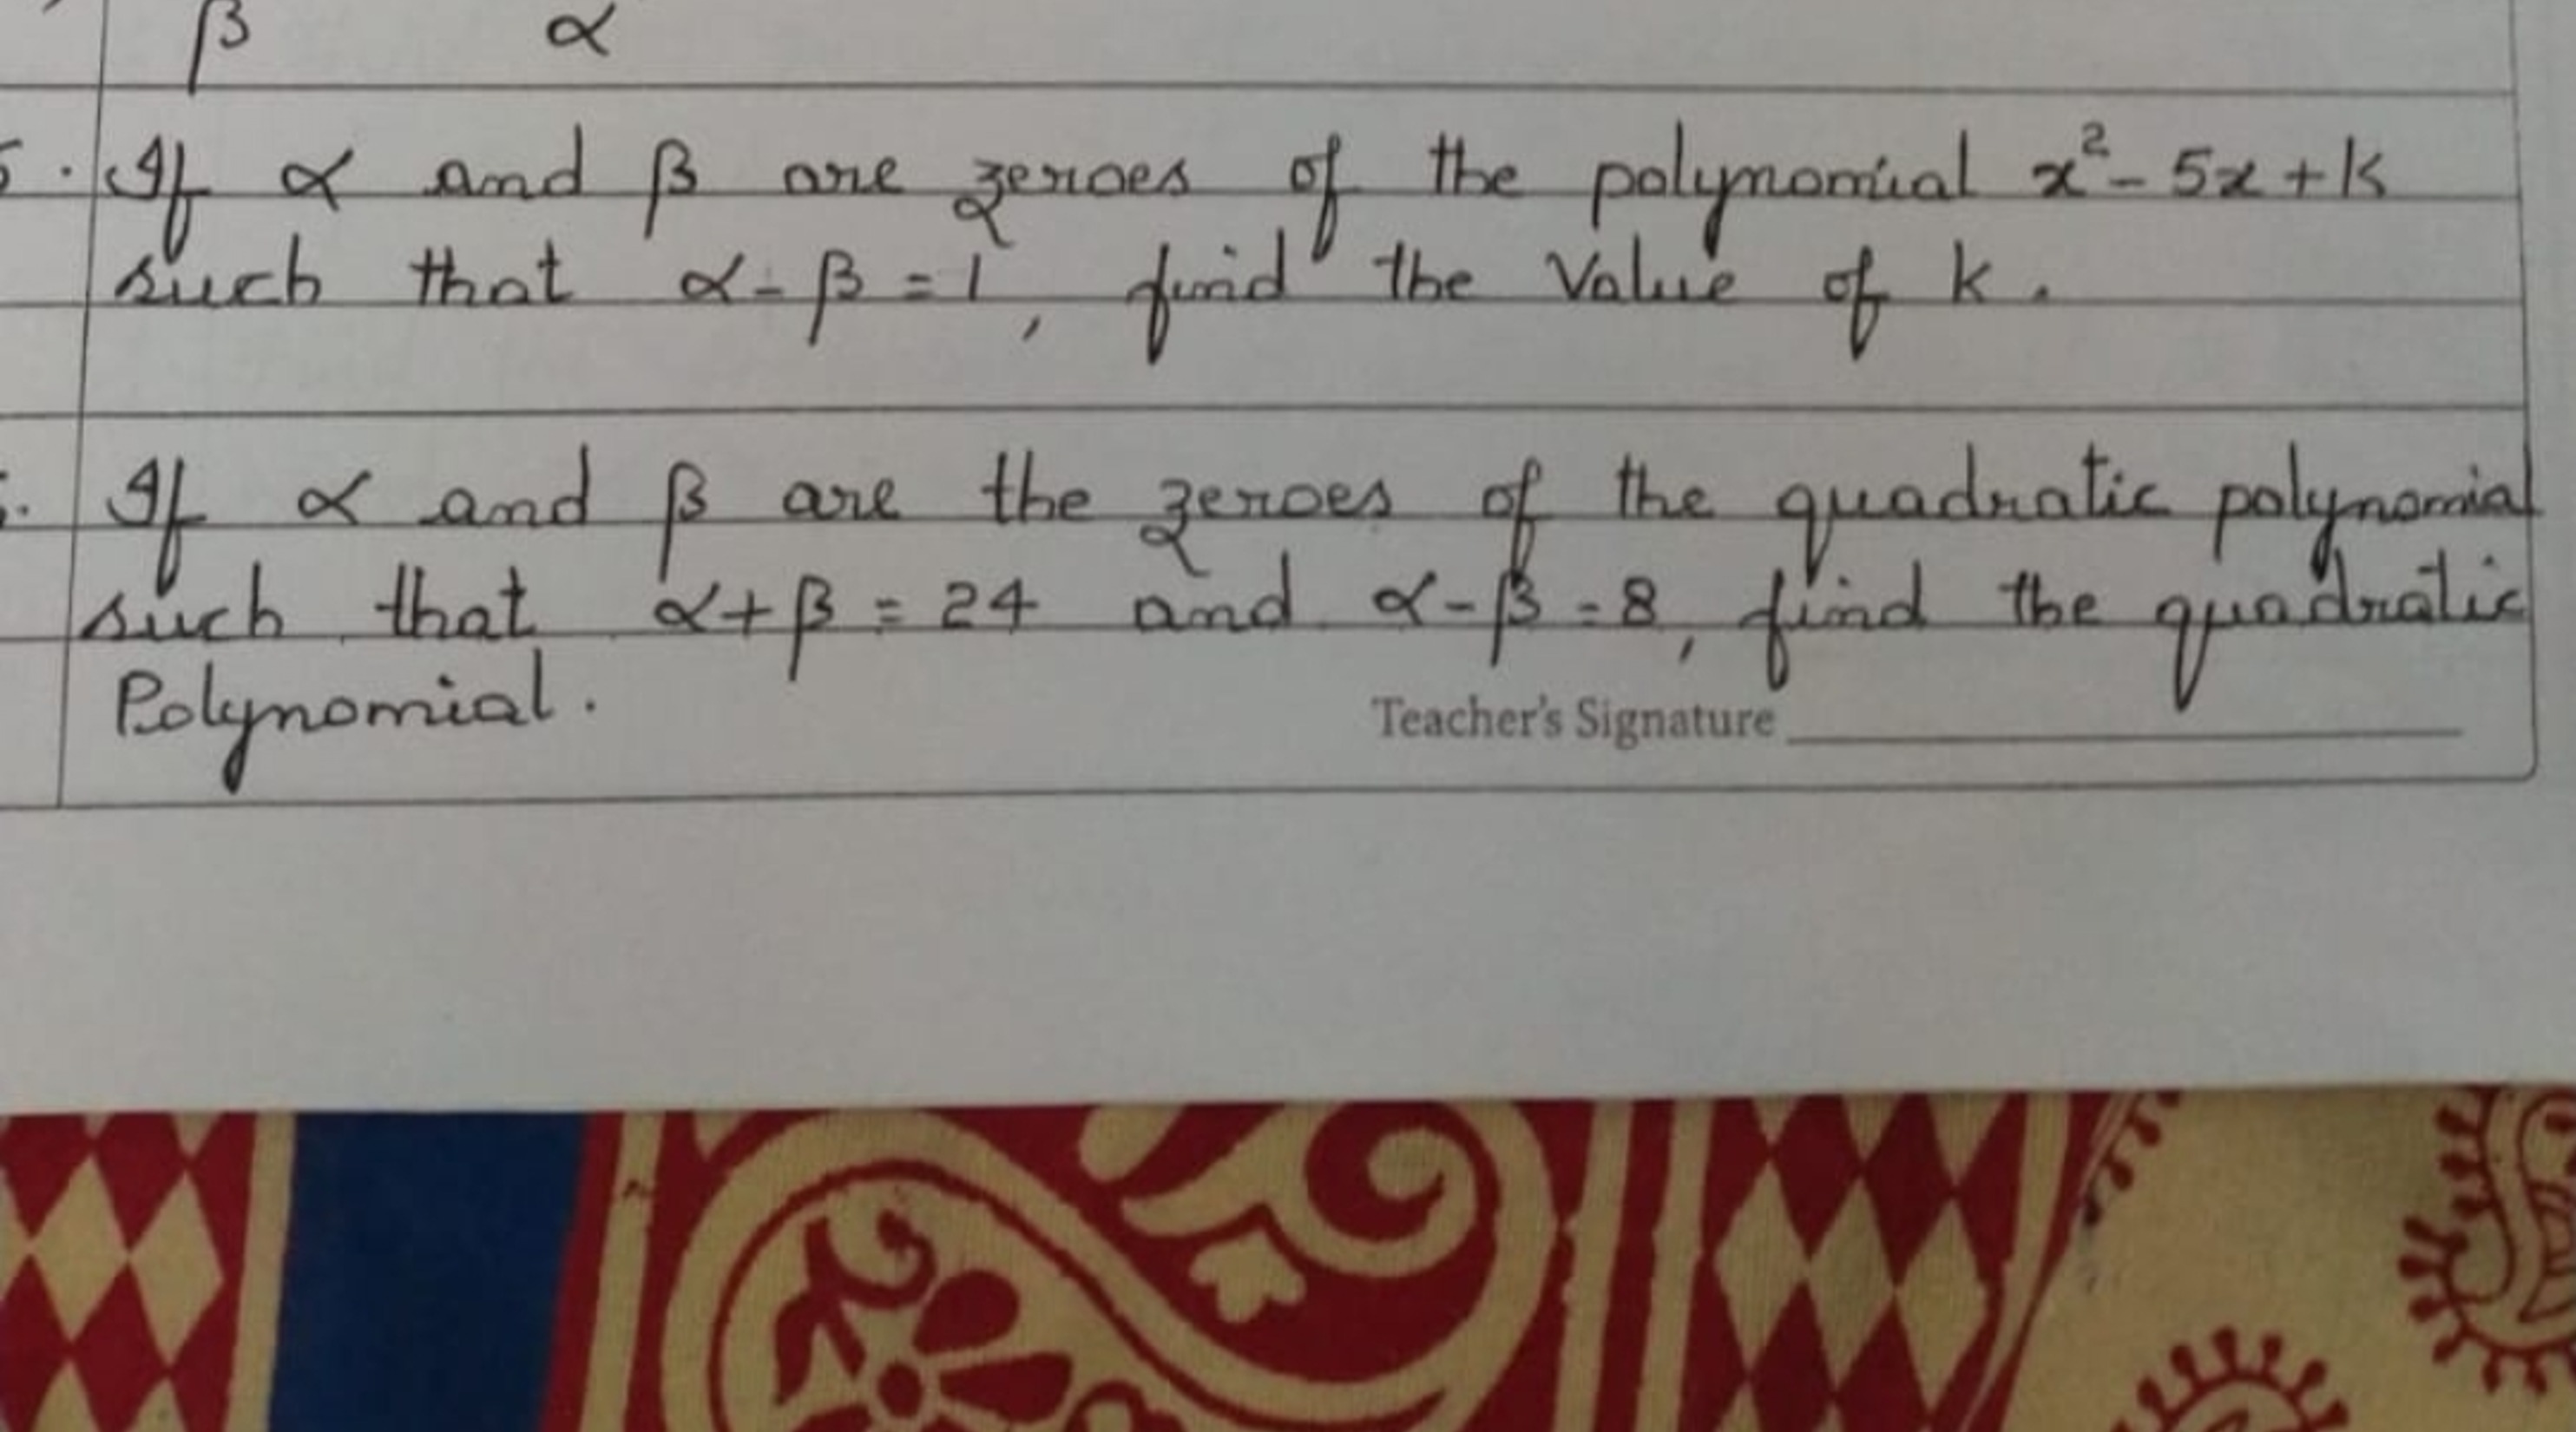 β α
5. If α and β are zeroes of the polynomial x² - 5x + k
such that α - β = 1, find the value of k.
6. If α and β are the zeroes of the quadratic polynomial
such that α + β = 24 and α - β = 8, find the quadratic
Polynomial.
Teacher's Signature